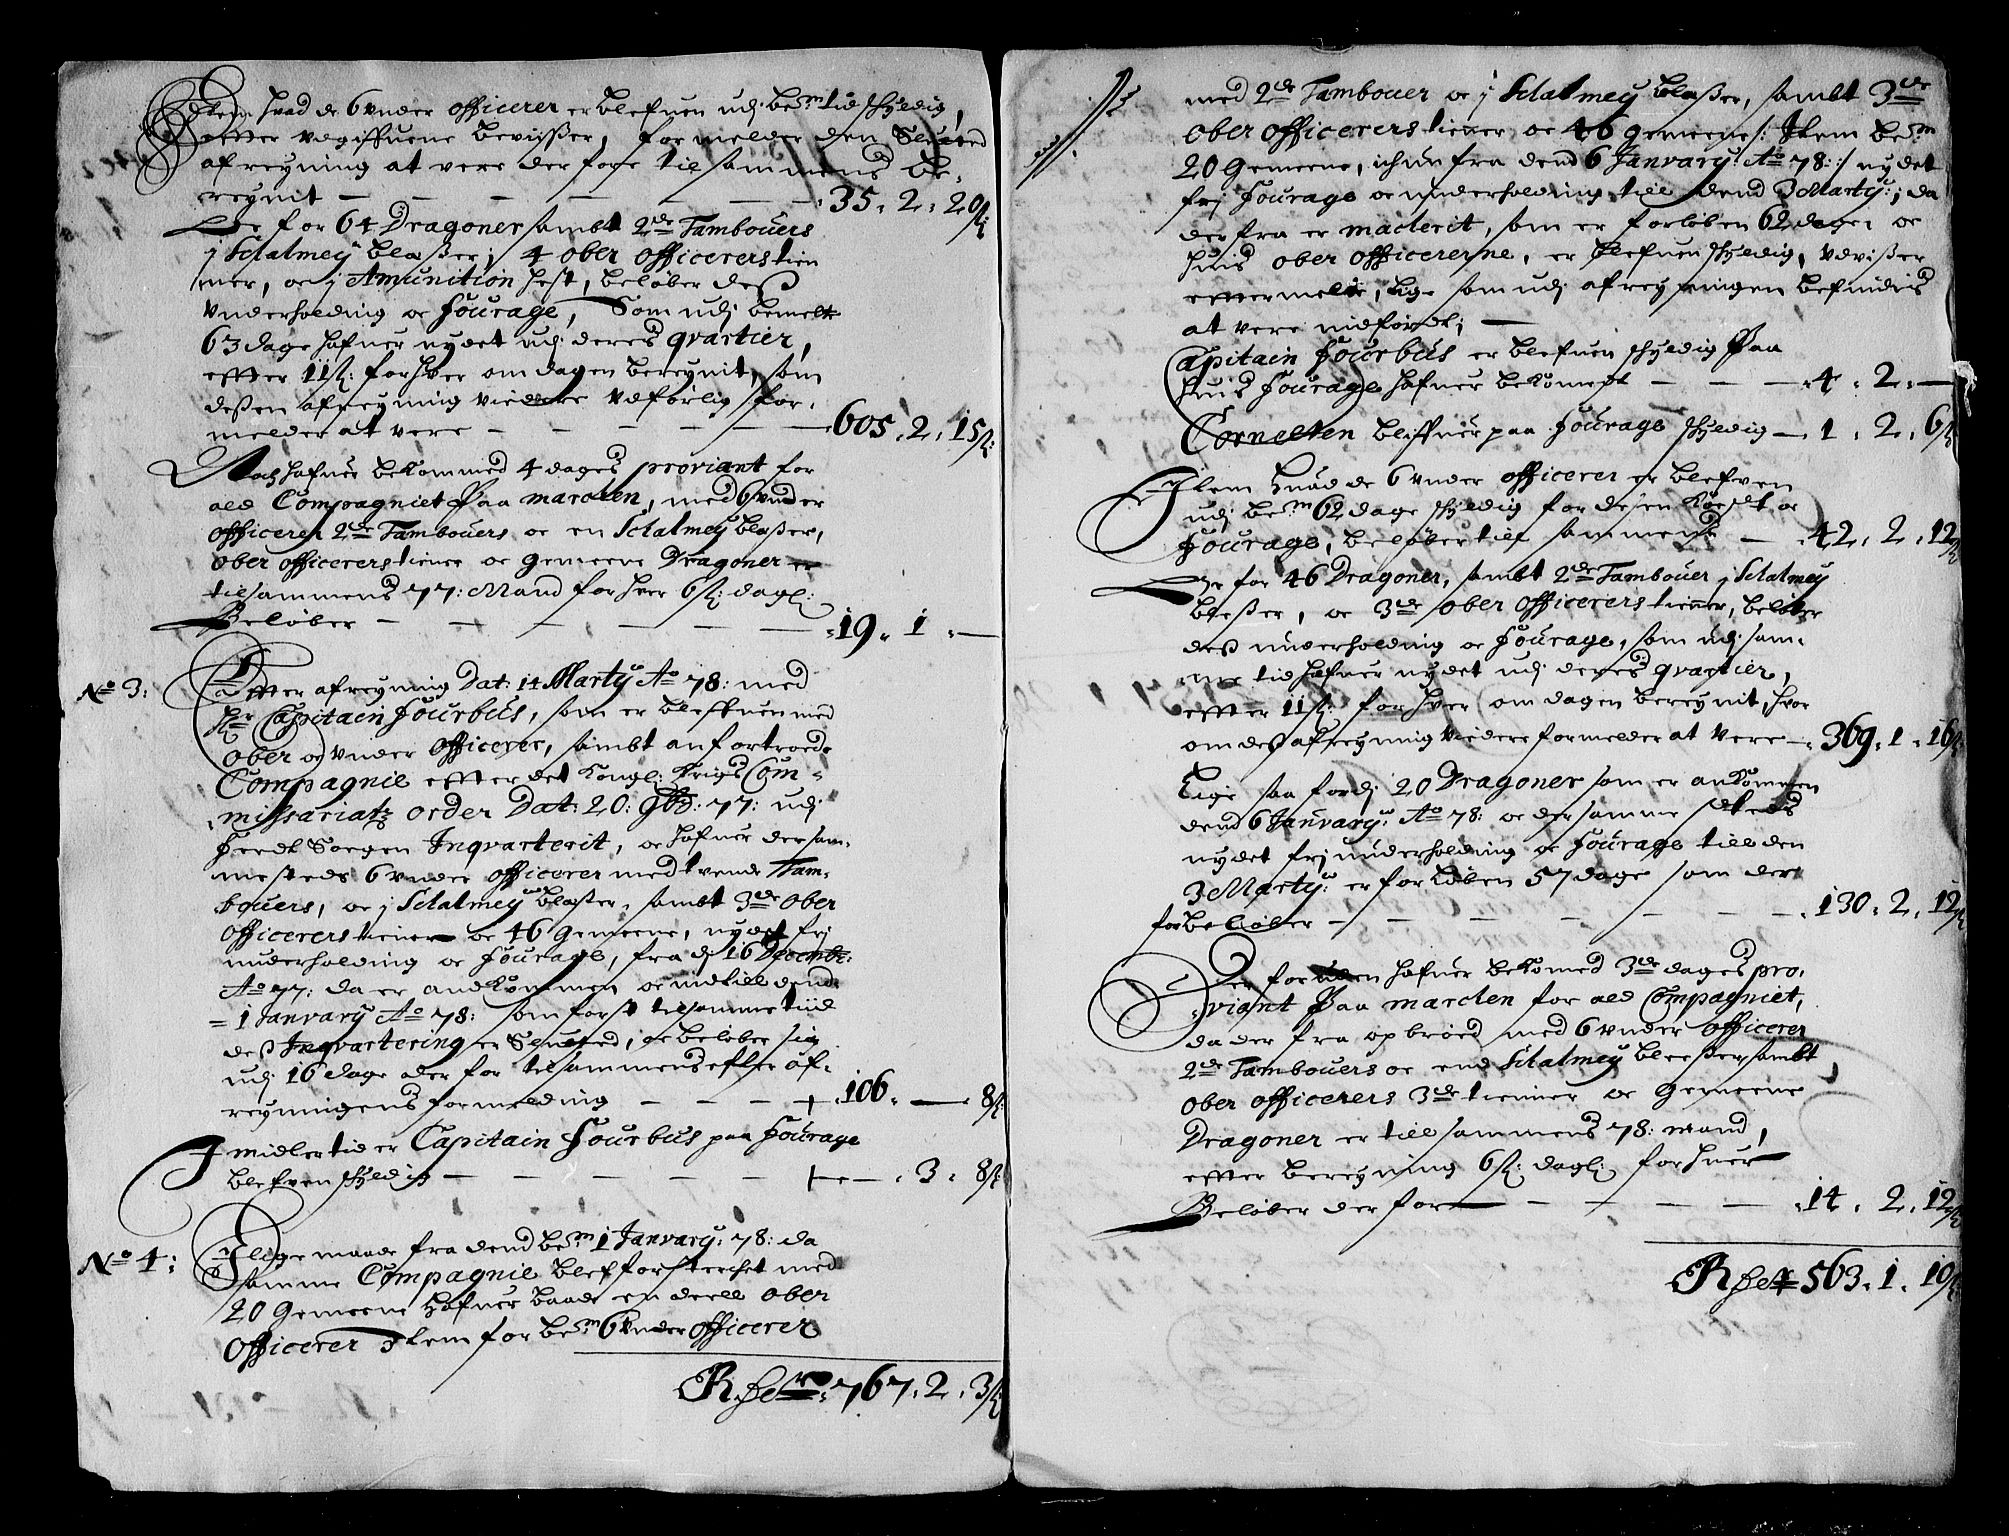 Item hvad de 6 vnder officerer er blefuen udj bem:te tid schyldig,
effter vdgiffuene beviisser, formelder den Sluted
afreyning at vere derfore til sammens be-
reynit — 35. 2. 20 ß:
Er for 64 Dragoner sambt 2de Tambouers
j Schalmey blaßer, 4 ober officererstien
ner, oc j Amunition hest, beløber deß
vnderholding oc fourage, Som udj bemelte
63 dage hafuer nydet udj deres qvartier,
effter 11 ß: for hver om dagen bereynit, som
desen afreyning viedere vdførlig for-
melder at vere — 605. 2. 15 ß:
Nach hafuer bekommed 4 dages proviant for
ald Compagniet paa marchen, med 6 vnder
officerer 2de Tambouers oc en Schalmey blaßer,
ober officererstiener oc gemeene Dragoner er
tilsammens 77: Mand for hver 6 ß: dagl:
Beløber — 19. 1. —
No 3: Effter afreyning Dat: 14 Marty Ao 78: med
hr Capitain fourbus, som er bleffuen med
ober oc vnder officerer, sambt anfortroede
Compagnie effter det kongl: Krigs Com-
missariatz order Dat: 20: 9br: 77: udj
heedt Sorgen Inqvarterit, oc hafuer der sam-
mesteds 6 vnder officerer med tvende Tam-
bouers, oc j Schalmey blaßer, sambt 3de ober
officererstiener oc 46 gemeene, nydet frj
underholding oc fourage, fra d 16 Decembr:
Ao 77: da er andkommen oc indtill dend
1 January Ao 78: som forst til samme tiid
deß Inqvartering er Sluted, oc beløber sig
udj 16 dage der for tilsammens effter af-
reyningens formelding — 106. — 8 ß:
Imidlertid er Capitain fourbus paa fourage
blefven schyldig — 3. 8 ß:
No 4: Iligemaade fra dend bem: 1 January: 78: da
samme Compagnie blef forsterchet med
20 gemeene hafuer baade en deell ober
officerer Item for bem: 6 vnder officerer
Rdlr 767. 2. 3 ß
med 2de Tambouer oc j Schalmey blaßer, sambt 3de
ober officererstiener oc 46 gemeene: Item bem:
20 Gemeene, ichun fra dend 6 January: Ao 78: nydet
frj fourage oc underholding till dend 3 Marty:, da
derfra er macherit, som er forløben 62 dage, oc
huis ober officererne, er blefuen schyldig, vdviser
efftermelte, lige som udj afreyningen befindis
at vere indfördt; —
Capitain fourbus er blefuen schyldig paa
huis fourage hafuer bekomedt — 4. 2. —
Cornetten bliffuer paa fourage schyldig — 1. 2. 6 ß
Item huad de 6 vnder officerer er blefven
udj bem: 62 dage schyldig for desen koest oc
fourage, beløber till sammens — 42. 2. 12 ß
Er for 46 Dragoner, sambt 2de Tambouer j Schalmey
bleßer, oc 3de ober officererstienner, beløber
deß underholding oc fourage, som udj sam-
me tid hafuer nydet udj deres qvartier,
effter 11 ß: for hver om dagen bereynit, hvor
om deß afreynnig viedere formelder at vere — 369. 1. 16 ß:
Lige saa fordj 20 Dragoner som er ankommen
dend 6 January: Ao 78: oc der samme steds
nydet frj underholding oc fourage till den
3 Marty: er forløben 57 dage som der
for beløber — 130. 2. 12 ß
Der foruden hafuer bekomed 3de dages pro-
viant paa marchen for ald Compagniet,
da der fra opbröed med 6 vnder officerer
2de Tambouers oc end Schalmey bleeßer sambt
ober officerers 3de tienner oc gemeene
Dragoner er till sammens 78: mand,
effter bereyning 6 ß: daglj: for huer
Beløber der for — 14. 2. 12 ß
Rdlr 563. 1. 10 ß